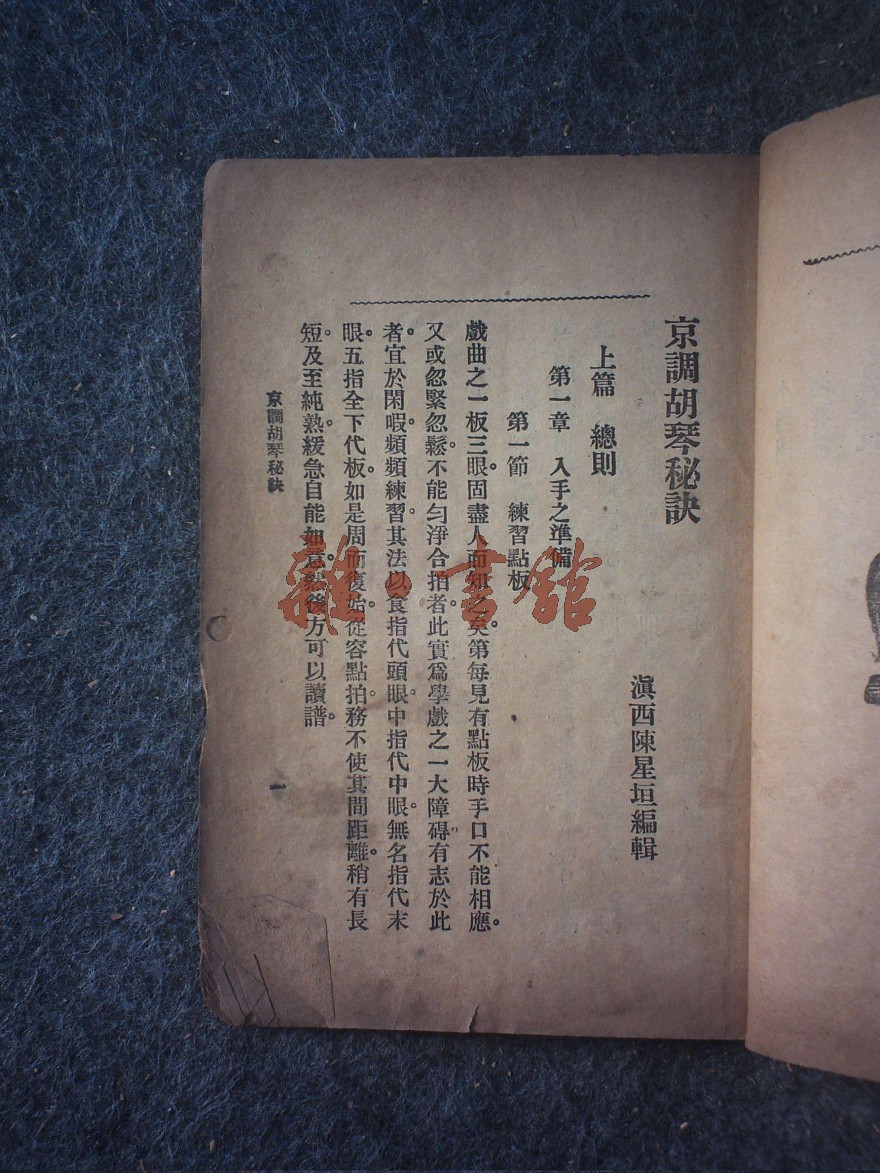 京調胡琴秘訣
滇西陳星垣編輯
上篇 總則
第一章 入手之準備
第一節 練習點板
戲曲之一板三眼。固盡人而知之矣。第每見有點板時手口不能相應。
又或忽緊忽鬆。不能勻淨合拍者。此實爲學戲之一大障碍。有志於此
者。宜於閑暇。頻頻練習。其法以食指代頭眼。中指代中眼。無名指代末
眼。五指全下代板。如是周而復始。從容點拍。務不使其間距離。稍有長
短。及至純熟。緩急自能如意。然後方可以讀譜。
京調胡琴秘訣
一
雜·書館